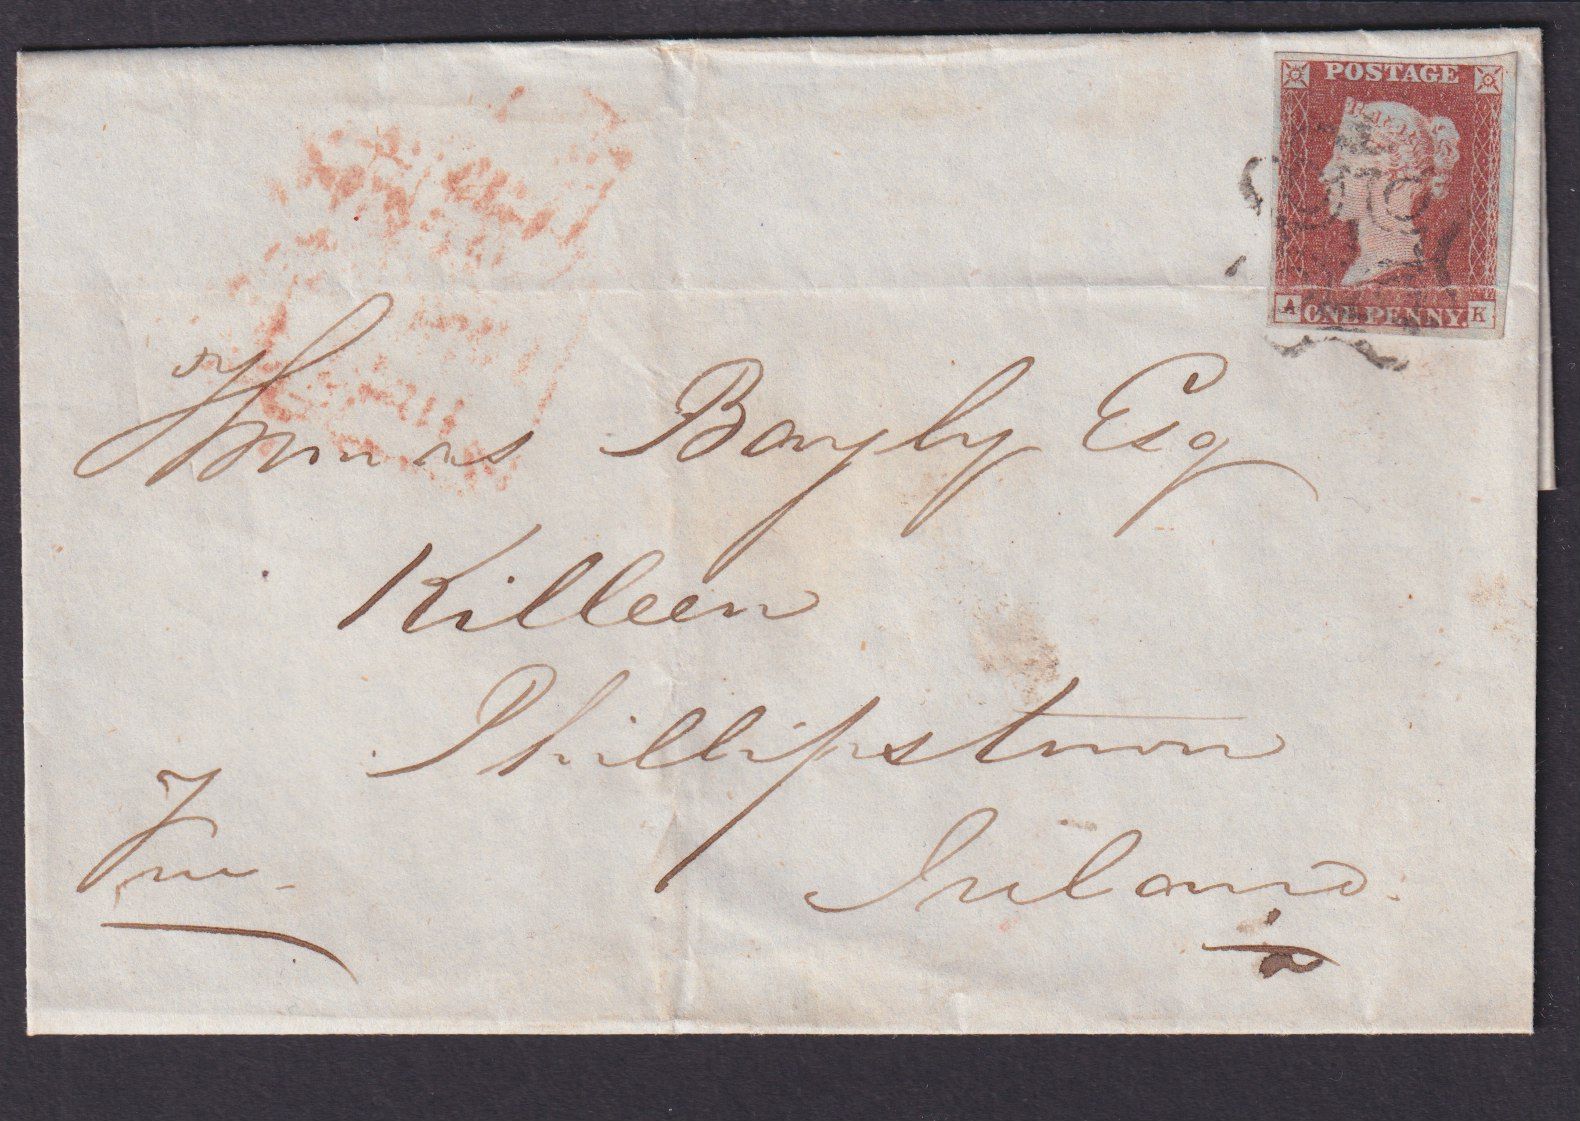 POSTAGE
A ONE PENNY. K
Thomas Bayly Esq
Killeen
Phillipstown
Ireland